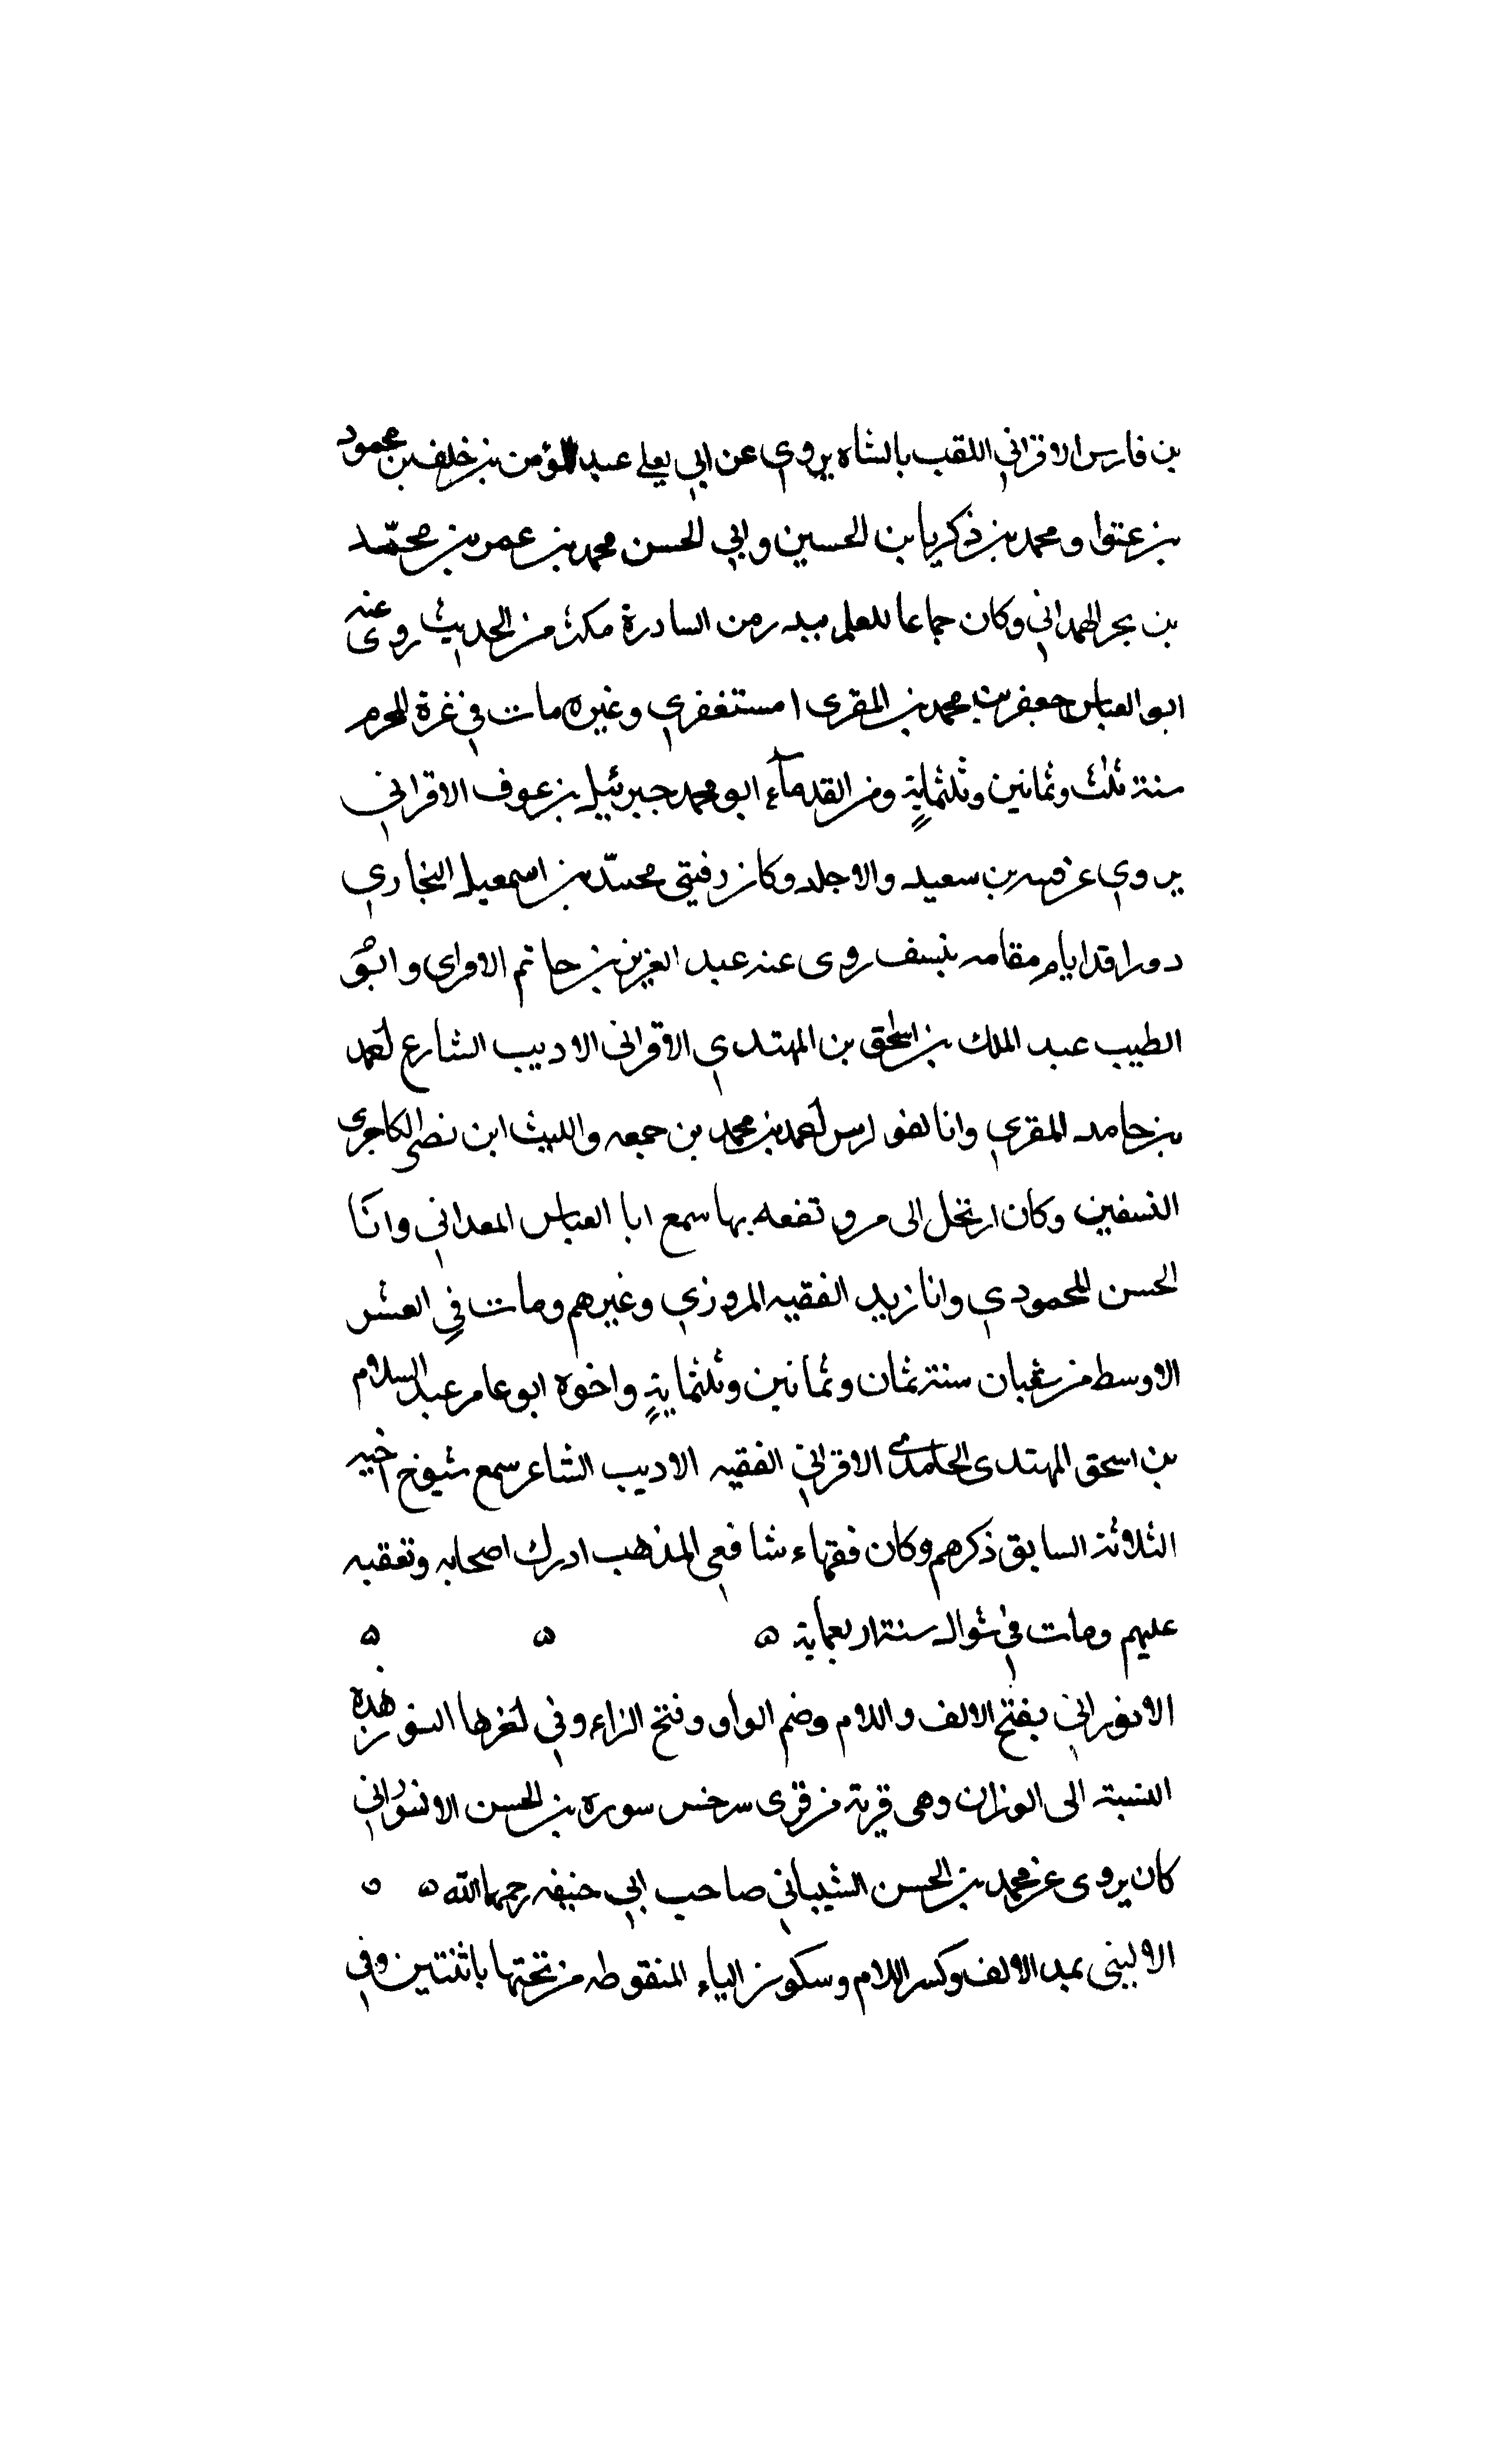 بن فارس الافراني اللقب بالشاه يروي عن ابي يعلى عبد المؤمن بن خلف بن محمود
بن عنوا ومحمد بن ذكريا بن الحسين وابي الحسن محمد بن عمر بن محمد
بن بحر الهمداني وكان جماعا للعلم ميله رمن السادرة مكثر من الحديث روى عنه
ابو العباس جعفر بن محمد بن المقرى امستغفري وغيره مات في غرة المحرم
سنة ثلث وثمانين وثلثماية ومن القدمآء ابو محمد جبرئيل بن عوف الافراني
يروي عن بن سعيد والاجله وكان رفيق محمد بن اسمعيل البخاري
ايام مقامه بنسف روى عنه عبد العزيز بن حاتم الافراي وابو
الطيب عبد الملك بن اسحق بن المهتدي الافراني الاديب الشارع احمد
بن حامد المقري وانا احمد بن محمد بن جمعه والليث ابن نصر الكاجرى
النسفين وكان ارتحل الى مرو تفعه بها سمع ابا العباس المعداني وانا
الحسن المحمودي وانا زيد الفقيه المروزي وغيرهم ومات في العشر
الاوسط من شعبان سنة ثمان وثمانين وثلثماية واخوه ابو عامر عبد السلام
بن اسحق المهتدى الحامدى الافراني الفقيه الاديب الشاعر سمع شيوخ اخيه
الثلاثة السابق ذكرهم وكان فقهاء شافعي المذهب ادرك اصحابه وتفقه
عليهم ومات في شوال سنة اربعماية ه ه ه
بفتح الالف واللام وضم الواو وفتح الزاء وفي اخرها النون هذه
النسبة الى الوزان وهى قرية من قرى سرخس سوره بن الحسن
كان يروى عن محمد بن الحسن الشيباني صاحب ابي حنيفه رحمهما الله ه ه
الاليني بمد الالف وكسر اللام وسكون الياء المنقوطه من تحتها باثنتين وفي